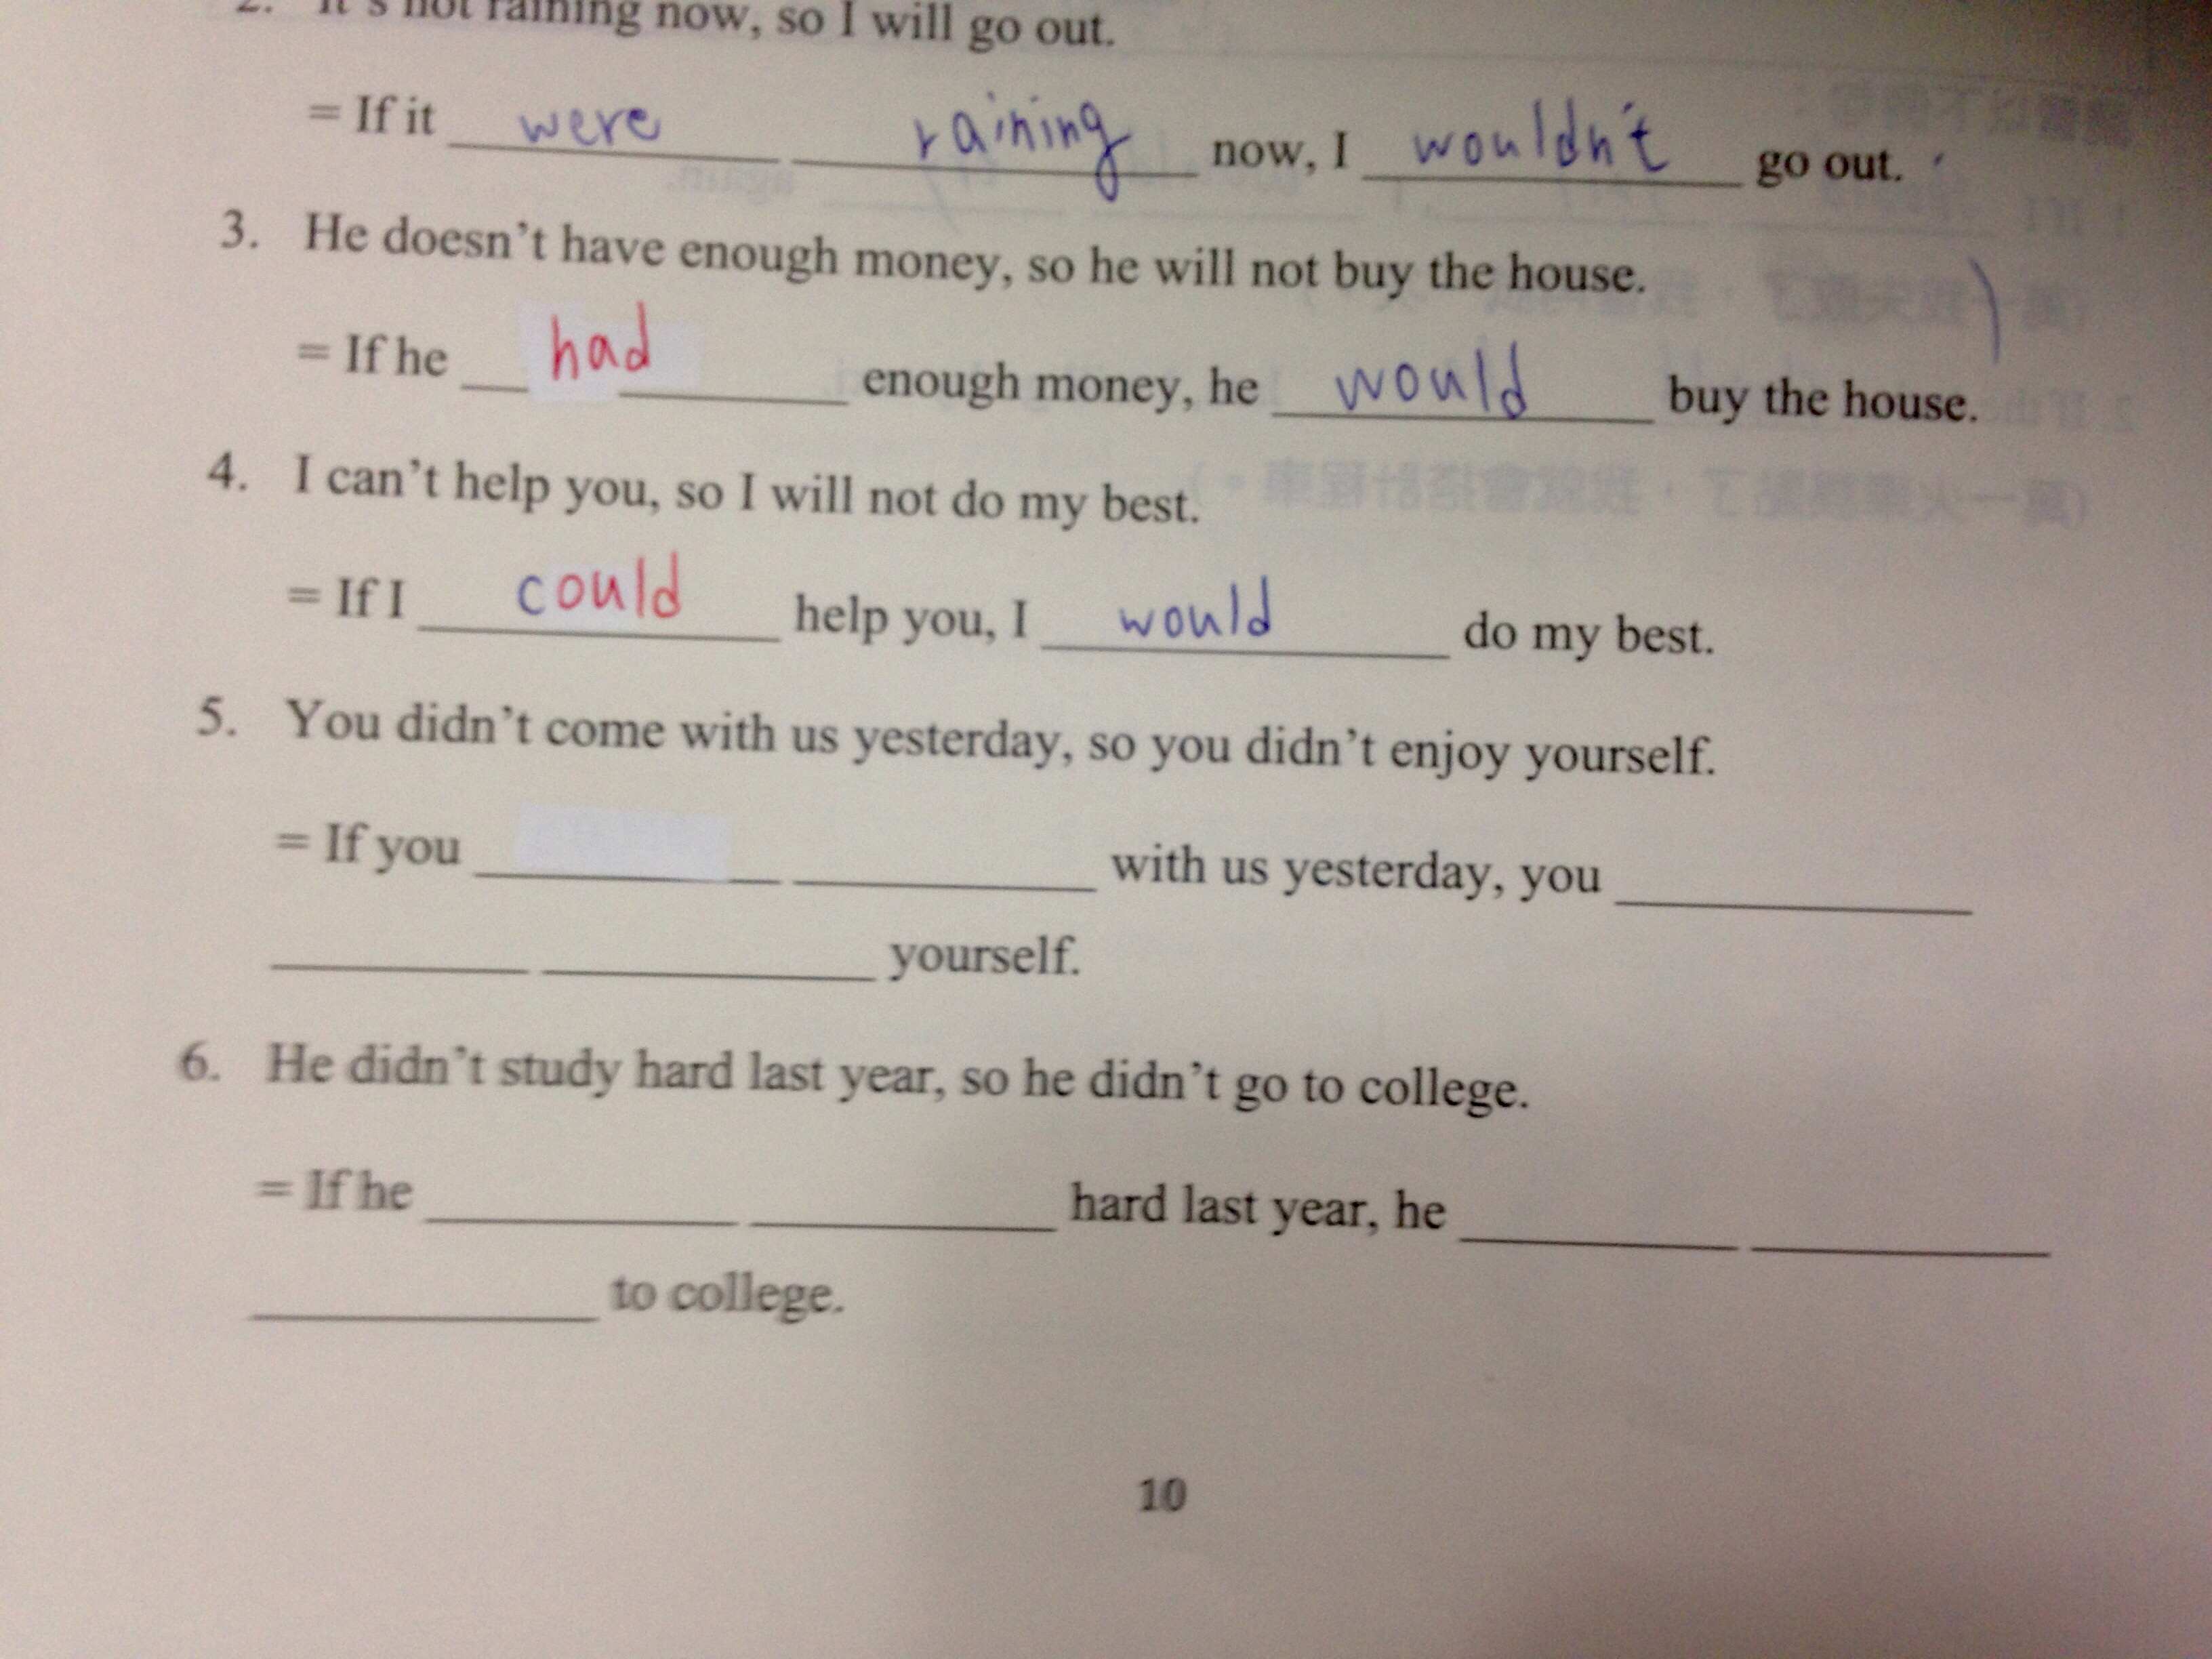 2. It's not raining now, so I will go out.
= If it were raining now, I wouldn't go out.
3. He doesn't have enough money, so he will not buy the house.
= If he had enough money, he would buy the house.
4. I can't help you, so I will not do my best.
= If I could help you, I would do my best.
5. You didn't come with us yesterday, so you didn't enjoy yourself.
= If you ____ ____ with us yesterday, you ____
____ ____ yourself.
6. He didn't study hard last year, so he didn't go to college.
= If he ____ ____ hard last year, he ____ ____
____ to college.
10